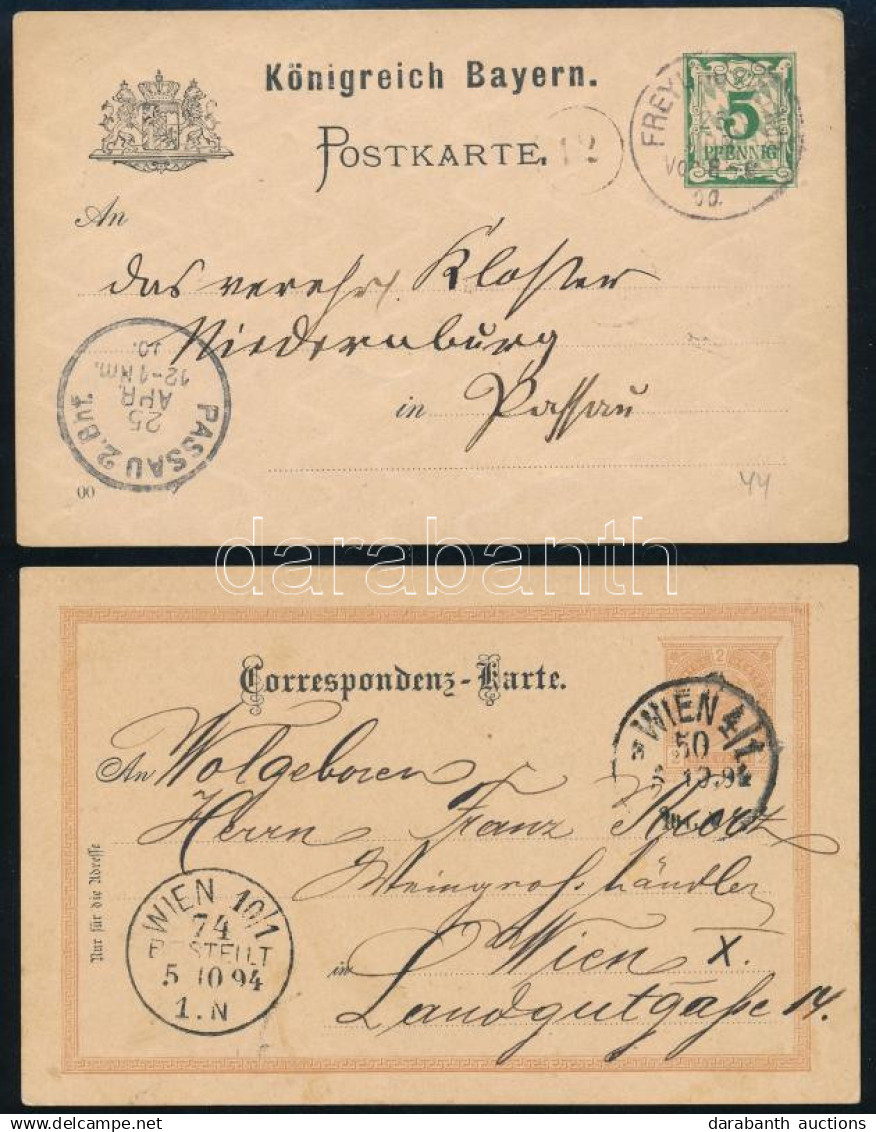 Königreich Bayern.
POSTKARTE.
12
5
PFENNIG
An
das verehr Kloster
Niedernburg
in Passau
PASSAU 2. Bhf.
25
APR.
12-1 Nm.
00.
00
44
darabanth
Correspondenz-Karte.
2
WIEN 4/1
50
10.94
An Wolgeboren
Herrn Franz
Weingrosshändler
in Wien X.
Landgutgaße 14.
Nur für die Adresse
WIEN 10/1
74
BESTELLT
5 10 94
1.N
darabanth auctions